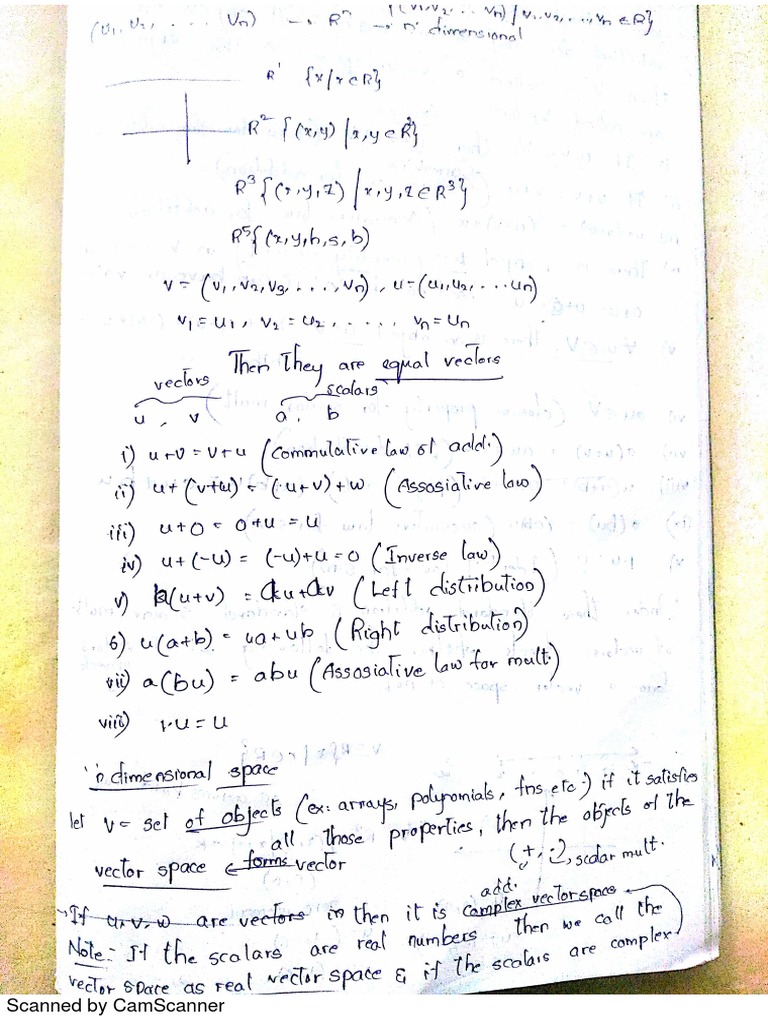 (v1, v2, . . . vn) → Rⁿ {(v1, v2 ... vn) | v1, v2, ..., vn ∈ R}
→ n dimensional
R¹ {x/x∈R}
R² {(x,y) | x,y ∈ R²}
R³ {(x,y,z) | x,y,z ∈ R³}
R⁵{(x,y,h,s,b)
v = (v1, v2, v3, . . . , vn), u = (u1, u2, . . . un)
v1 = u1, v2 = u2, . . . . vn = un
Then they are equal vectors
vectors scalars
u, v a, b
i) u+v = v+u (Commulative law of add.)
ii) u+(v+w) = (u+v)+w (Assosiative law)
iii) u+0 = 0+u = u
iv) u+(-u) = (-u)+u = 0 (Inverse law)
v) a(u+v) = au+av (Left distribution)
6) u(a+b) = ua+ub (Right distribution)
vii) a(bu) = abu (Assosiative law for mult.)
viii) 1.u = u
'n dimensional space
let V = set of objects (ex: arrays, polynomials, fns etc.) if it satisfies
all those properties, then the objects of the
vector space ← forms vector (+, .), scalar mult.
add.
→ If u, v, w are vectors in then it is complex vector space
Note:- If the scalars are real numbers then we call the
vector space as real vector space & if the scalars are complex
Scanned by CamScanner